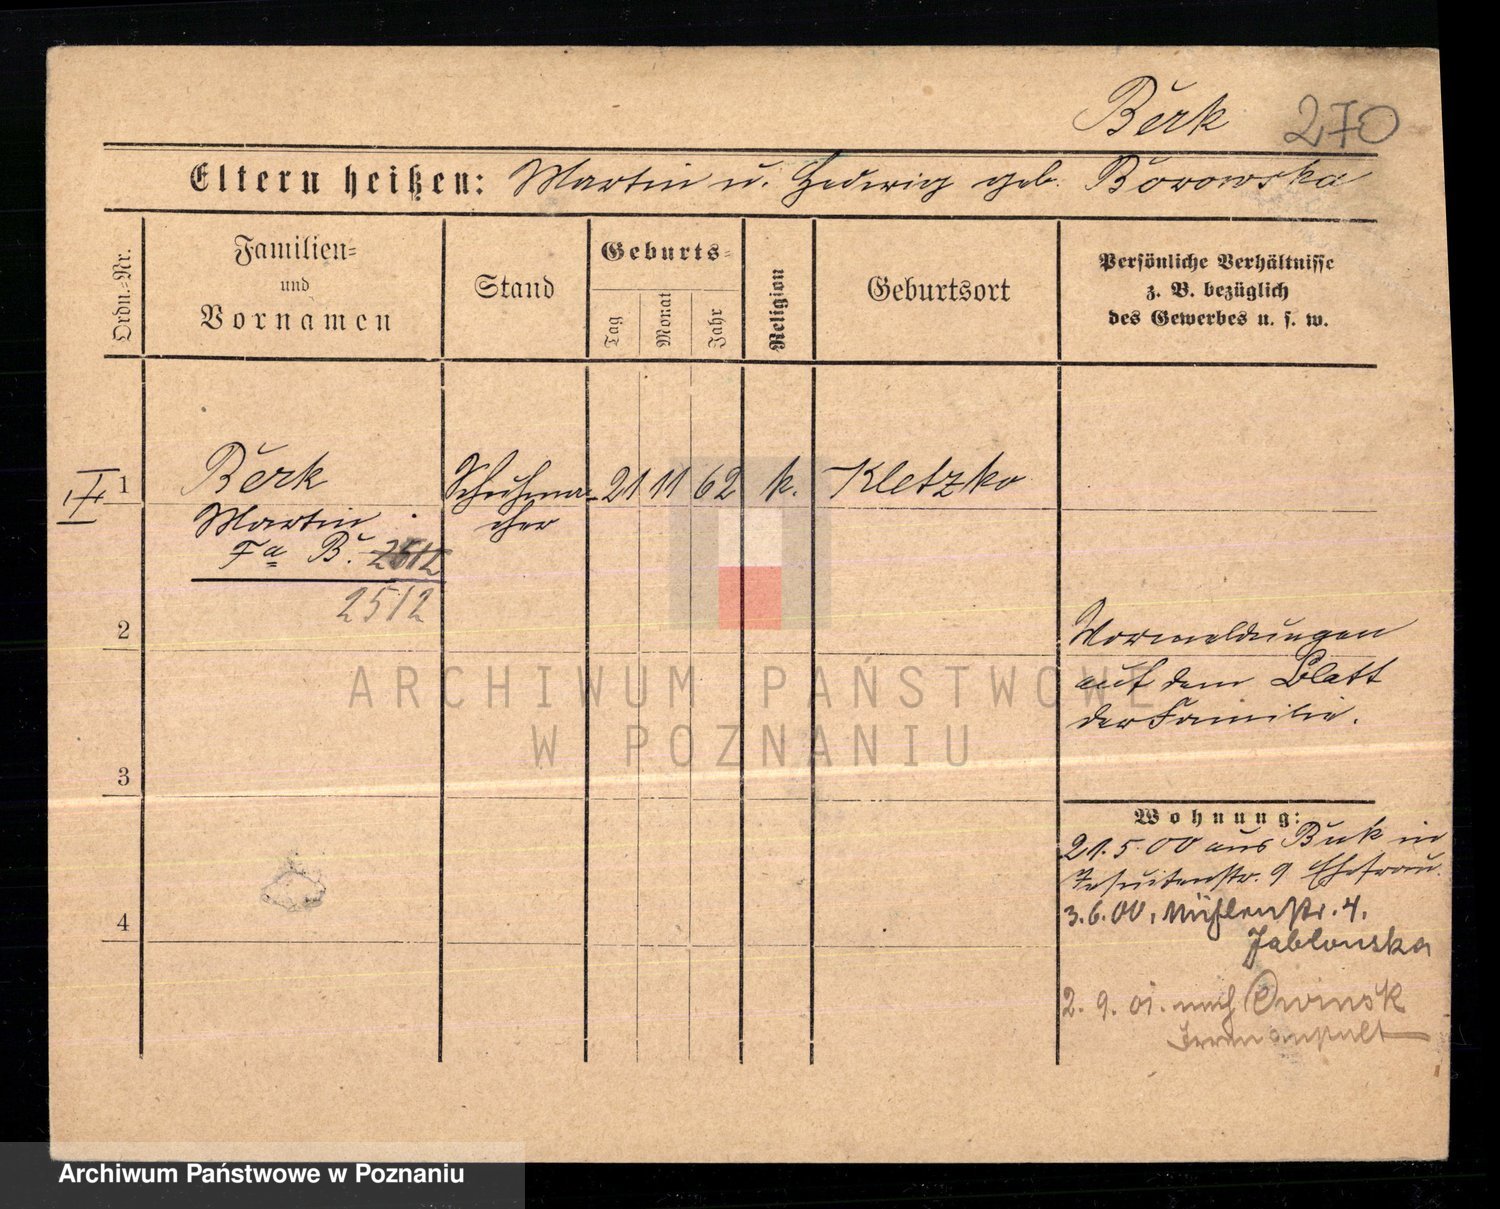 Berk 270
Eltern heißen: Martin u. Hedwig geb. Borowska
Ordn.=Nr.
Familien=
und
Vornamen
Stand
Geburts=
Tag
Monat
Jahr
Religion
Geburtsort
Persönliche Verhältnisse
z. B. bezüglich
des Gewerbes u. s. w.
1 Berk Schuhma- 21 11 62 k. Kletzko
Martin cher
Fa B. 2512
2512
2
Vormeldungen
auf dem Blatt
der Familie.
3
Wohnung:
21.5.00 aus Buk in
Jesuitenstr. 9 Ehefrau
3.6.00, Mühlenstr. 4.
Jablonska
4
2. 9. 01. nach Owinsk
Irrenanstalt
ARCHIWUM PAŃSTWOWE
W POZNANIU
Archiwum Państwowe w Poznaniu